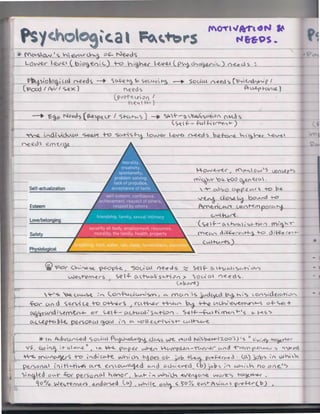 Psychological Factors
MOTIVATION &
NEEDS.
* Maslow's hierarchy of Needs
Lower level (biogenic) to higher level (psychogenic) needs :
Physiological needs → Safety & Security → Social needs (Friendship /
(Food / Air / Sex) needs Acceptance)
(protection /
health)
→ Ego Needs (Respect / Status) → Self-actualisation needs
(self-fulfilment)
The individual seek to satisfy lower level needs before higher level
needs emerge
morality,
creativity,
spontaneity,
problem solving,
lack of prejudice,
acceptance of facts
Self-actualization
self-esteem, confidence,
achievement, respect of others,
respect by others
Esteem
friendship, family, sexual intimacy
Love/belonging
security of body, employment, resources,
morality, the family, health, property
Safety
breathing, food, water, sex, sleep, homeostasis, excretion
Physiological
However, Maslow's concepts
might be too general.
It also appears to be
very closely bound to
American contemporary
culture.
(self-actualisation might
mean differently to different
cultures)
For Chinese people, Social needs ≥ Self actualisation
westerners, self actualisation > social needs.
(above)
It's because in Confucianism, a man is judged by his consideration
for and service to others, rather than by the achievement of self
aggrandisement or self-actualisation. Self-fulfilment is a less
acceptable personal goal in a collectivist culture
* In Advanced Social Psychology class we read
vs. Going it alone",
the managers to indicate which types of job they preferred : (a) jobs in which
personal initiatives are encouraged and achieved, (b) jobs in which no one is
singled out for personal honor, but in which everyone works together.
90% Westerners endorsed (a), while only < 50% East Asians prefer (b).